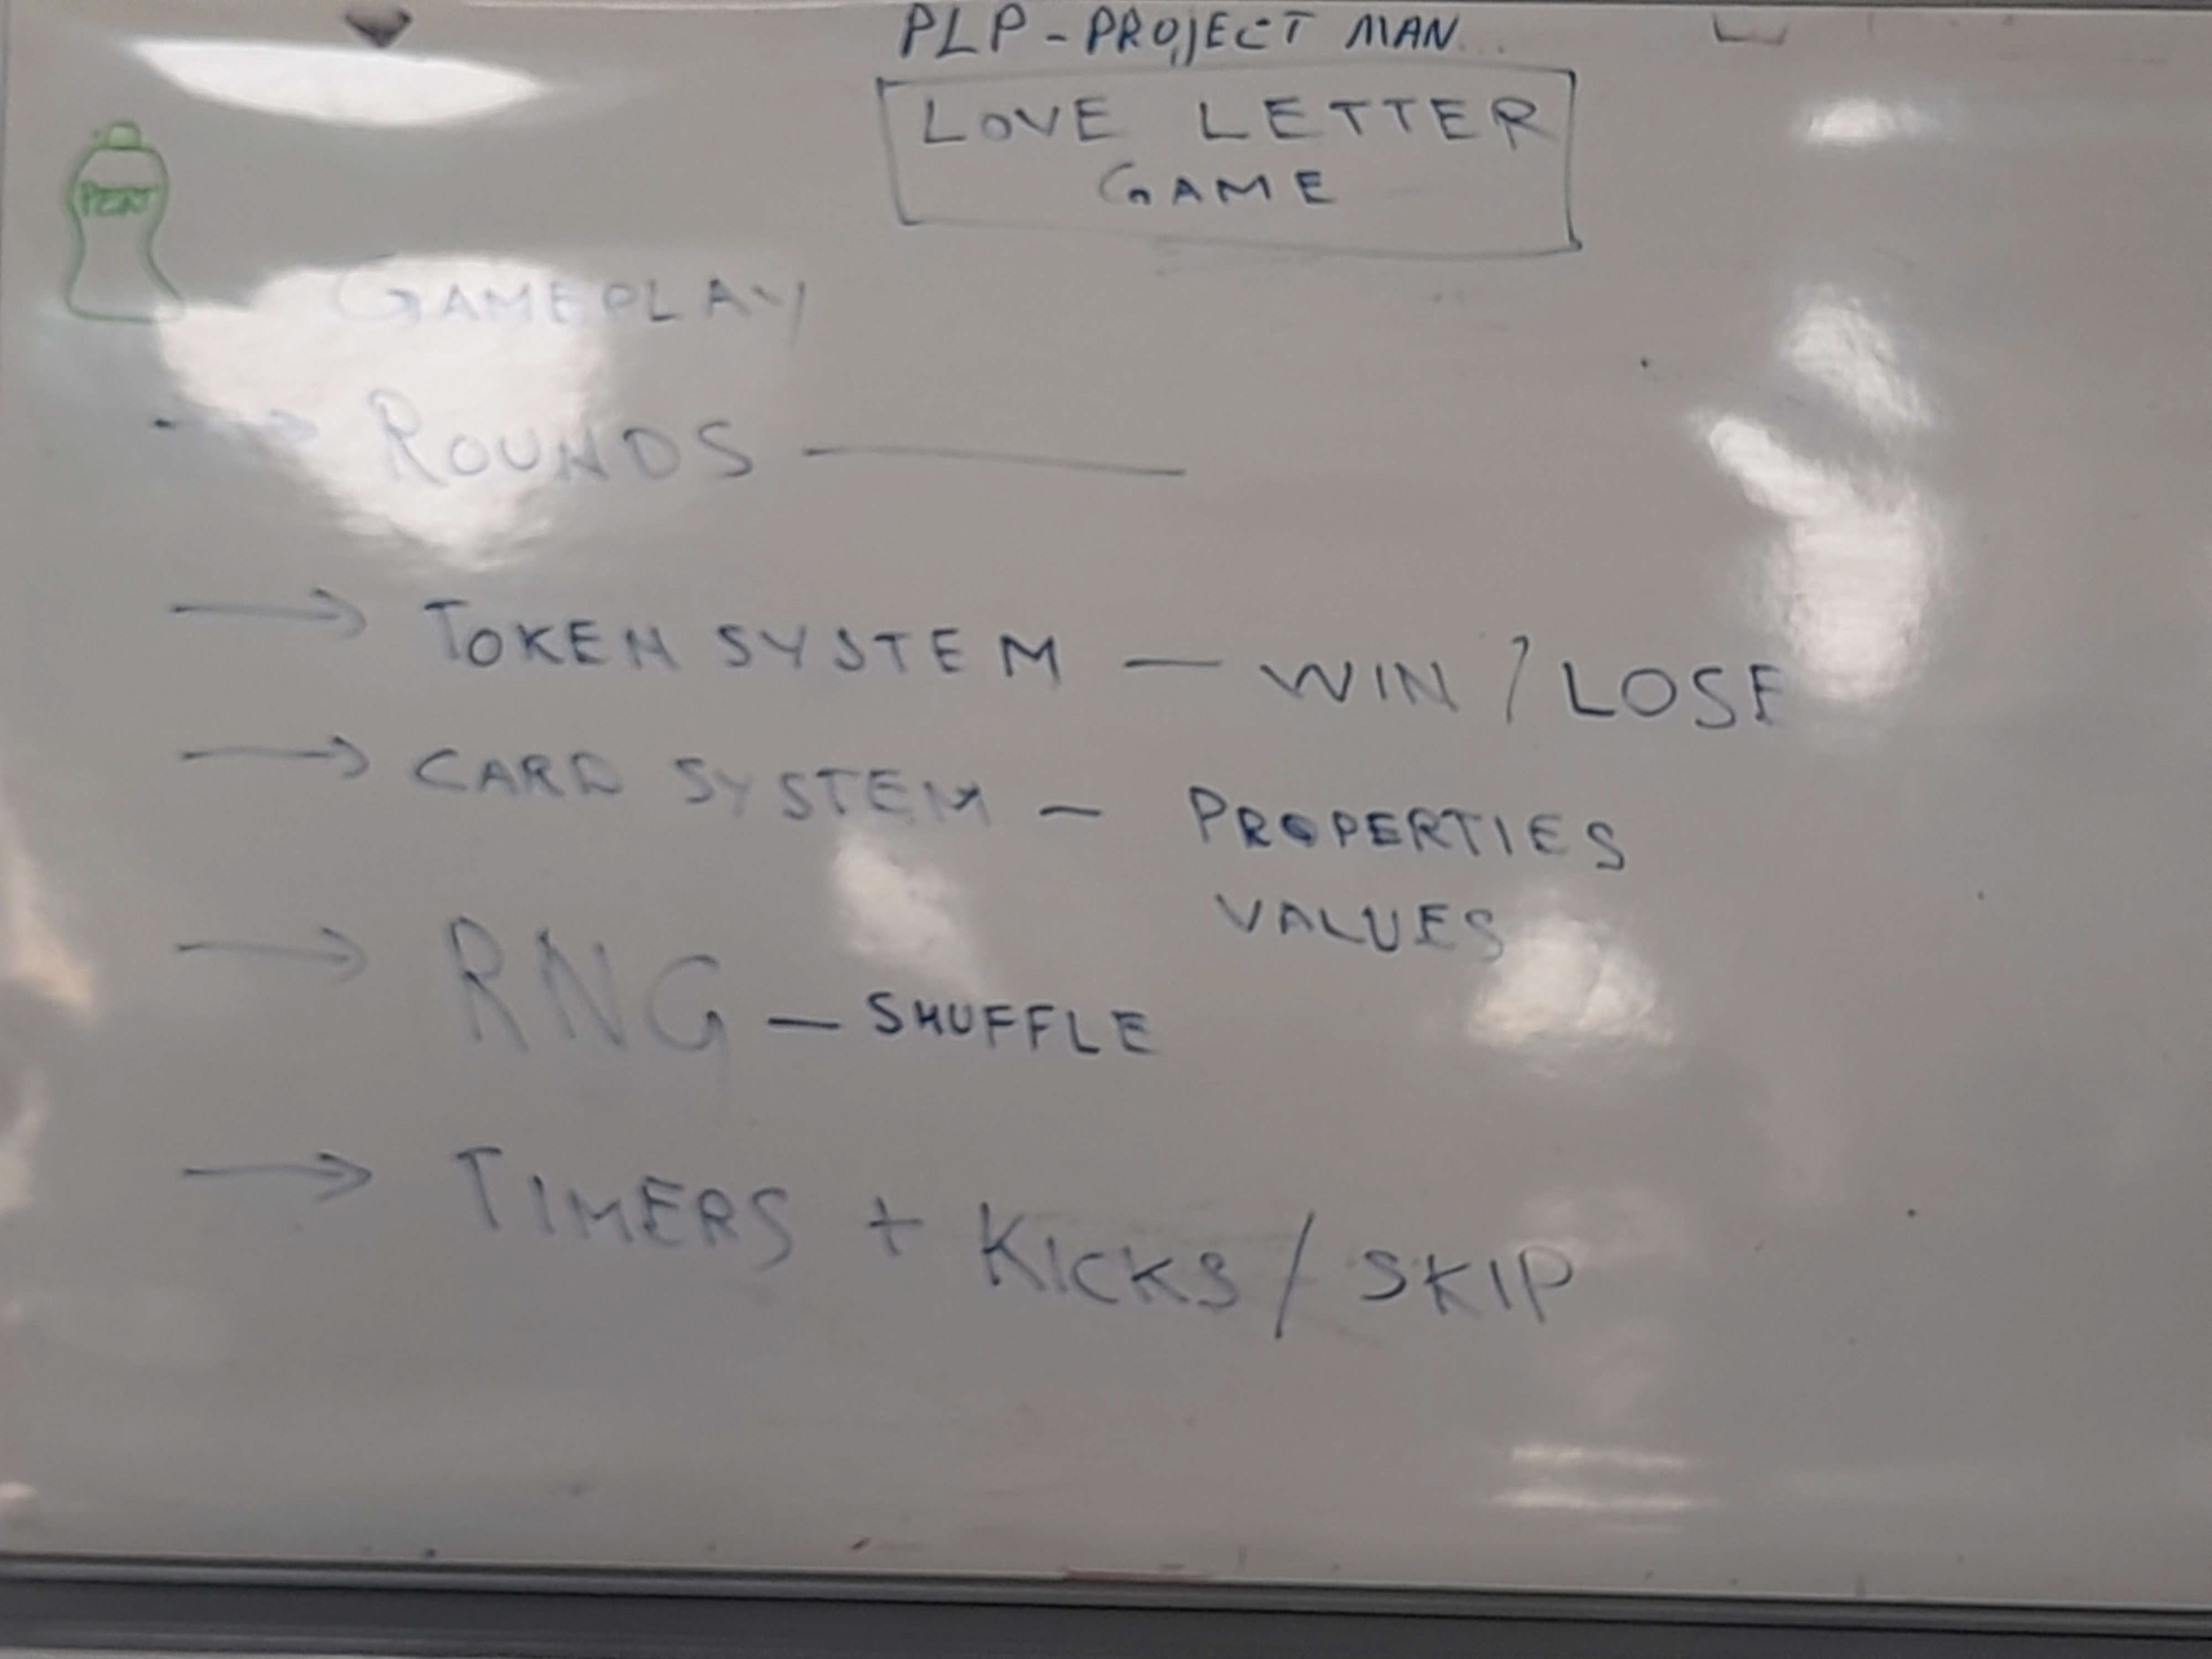 PLP - PROJECT MAN...
LOVE LETTER
GAME
GAMEPLAY
→ ROUNDS —
→ TOKEN SYSTEM — WIN / LOSE
→ CARD SYSTEM — PROPERTIES
VALUES
→ RNG — SHUFFLE
→ TIMERS + KICKS / SKIP